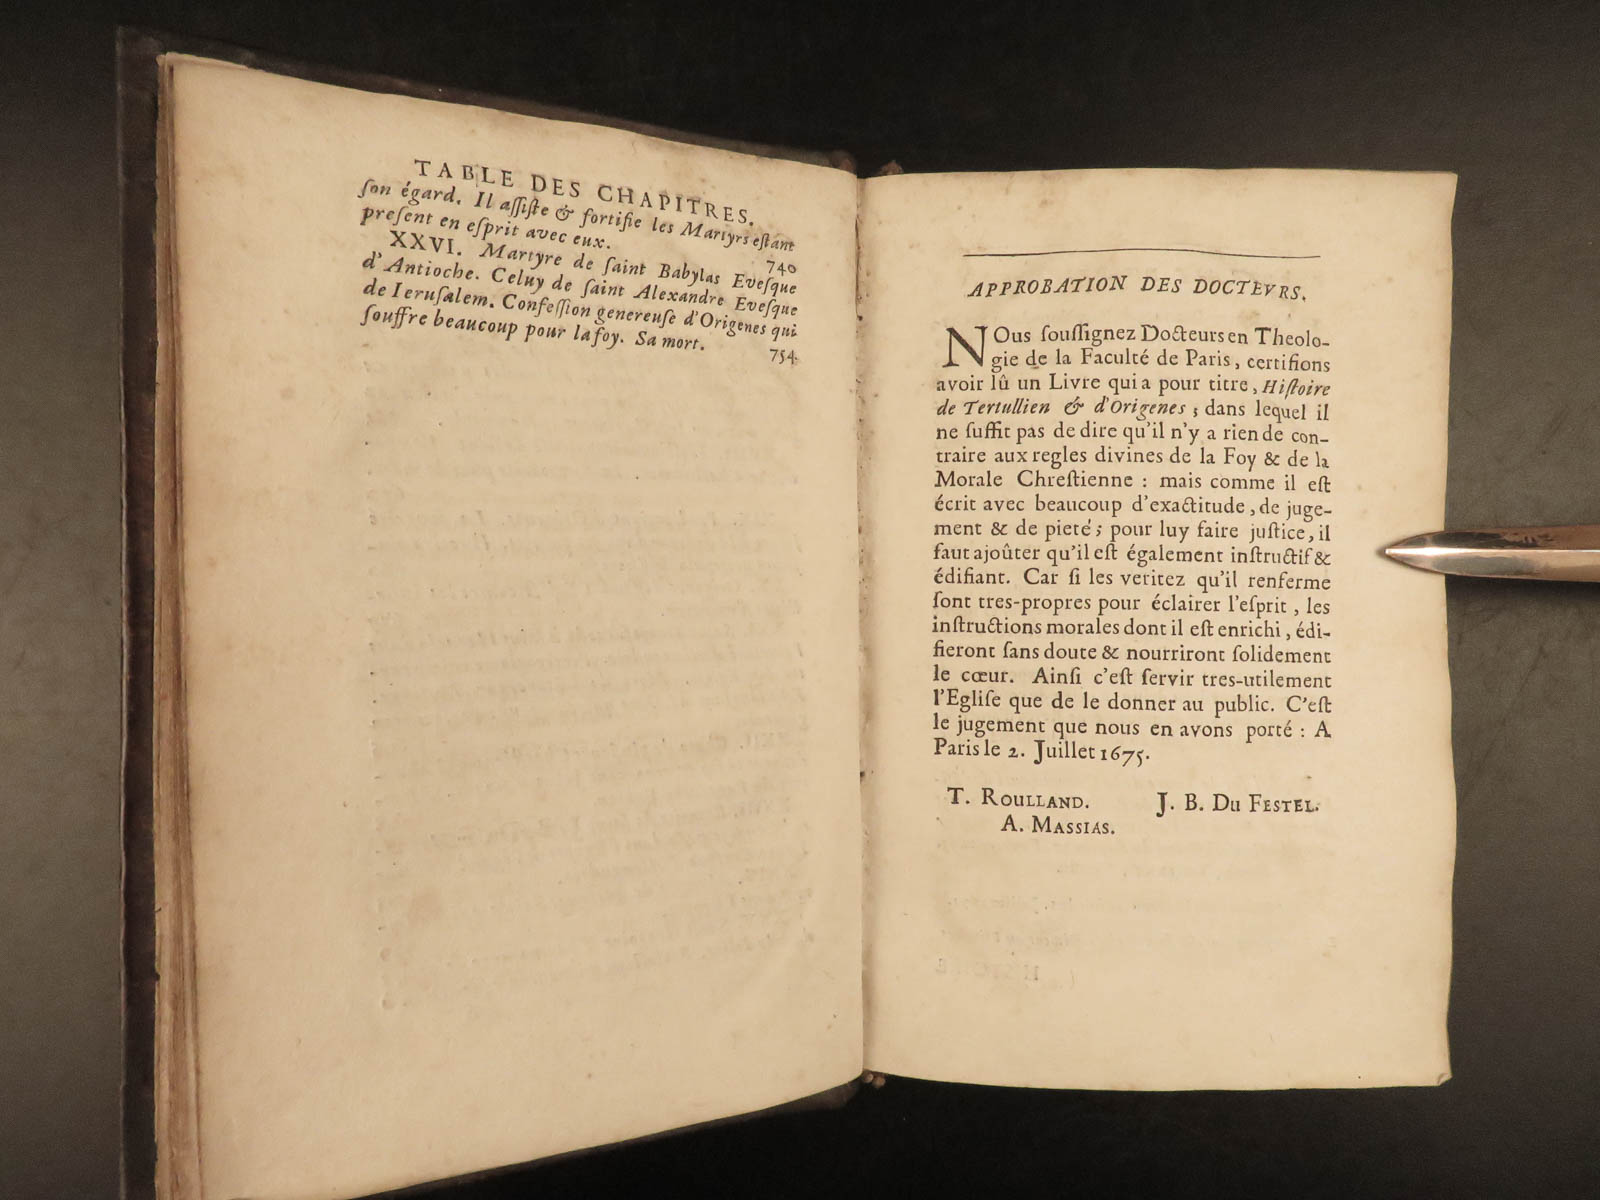 TABLE DES CHAPITRES.
ſon égard. Il aſſiſte & fortifie les Martyrs eſtant
preſent en eſprit avec eux. 740
XXVI. Martyre de ſaint Babylas Eveſque
d'Antioche. Celuy de ſaint Alexandre Eveſque
de Ieruſalem. Confeſſion genereuſe d'Origenes qui
ſouffre beaucoup pour la foy. Sa mort. 754
APPROBATION DES DOCTEVRS.
NOus ſouſſignez Docteurs en Theolo-
gie de la Faculté de Paris, certifions
avoir lû un Livre qui a pour titre, Hiſtoire
de Tertullien & d'Origenes ; dans lequel il
ne ſuffit pas de dire qu'il n'y a rien de con-
traire aux regles divines de la Foy & de la
Morale Chreſtienne : mais comme il eſt
écrit avec beaucoup d'exactitude, de juge-
ment & de pieté ; pour luy faire juſtice, il
faut ajoûter qu'il eſt également inſtructif &
édifiant. Car ſi les veritez qu'il renferme
ſont tres-propres pour éclairer l'eſprit, les
inſtructions morales dont il eſt enrichi, édi-
fieront ſans doute & nourriront ſolidement
le cœur. Ainſi c'eſt ſervir tres-utilement
l'Egliſe que de le donner au public. C'eſt
le jugement que nous en avons porté : A
Paris le 2. Juillet 1675.
T. ROULLAND. J. B. DU FESTEL.
A. MASSIAS.